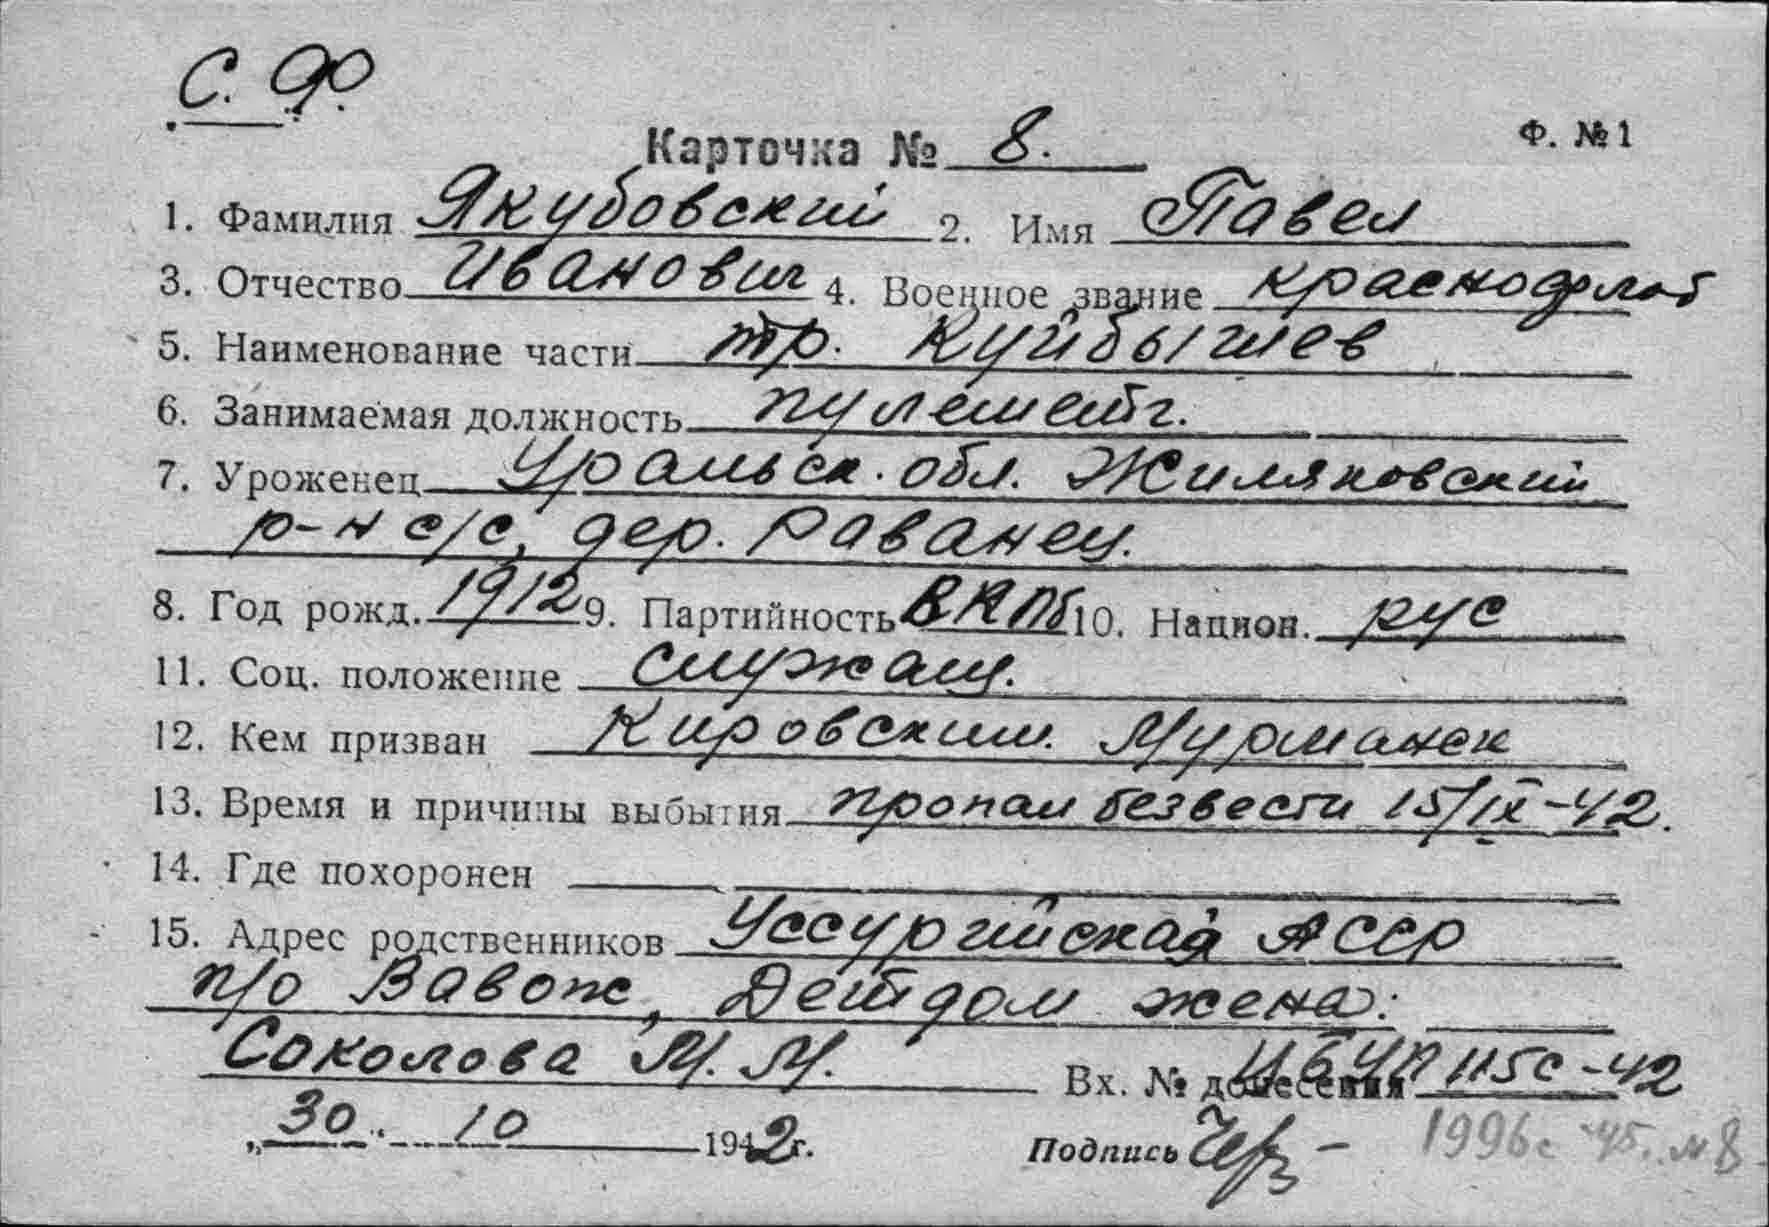 С. Ф.
Карточка № 8. Ф. № 1
1. Фамилия Якубовский 2. Имя Павел
3. Отчество Иванович 4. Военное звание краснофлот
5. Наименование части тр. Куйбышев
6. Занимаемая должность
7. Уроженец Уральск. обл. Жиляковский
р-н с/с, дер. Раванец.
8. Год рожд. 1912 9. Партийность ВКПб 10. Национ. рус
11. Соц. положение служащ.
12. Кем призван Кировским. Мурманск
13. Время и причины выбытия пропал безвести 15/IX-42.
14. Где похоронен
15. Адрес родственников Уссурийская АССР
п/о Вавож, Детдом жена:
Соколова М. М. Вх. № донесения ЦБУП 115с-42
„30" 10 1942г. Подпись 1996с-45. №8